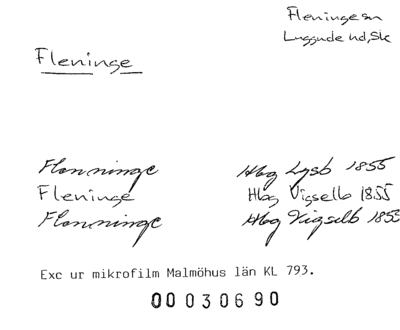 Fleninge sn
Luggude hd, Sk
Fleninge
Flenninge Hbg Lysb 1855
Fleninge Hbg Vigselb 1855
Flenninge Hbg Vigselb 1855
Exc ur mikrofilm Malmöhus län KL 793.
00 030690